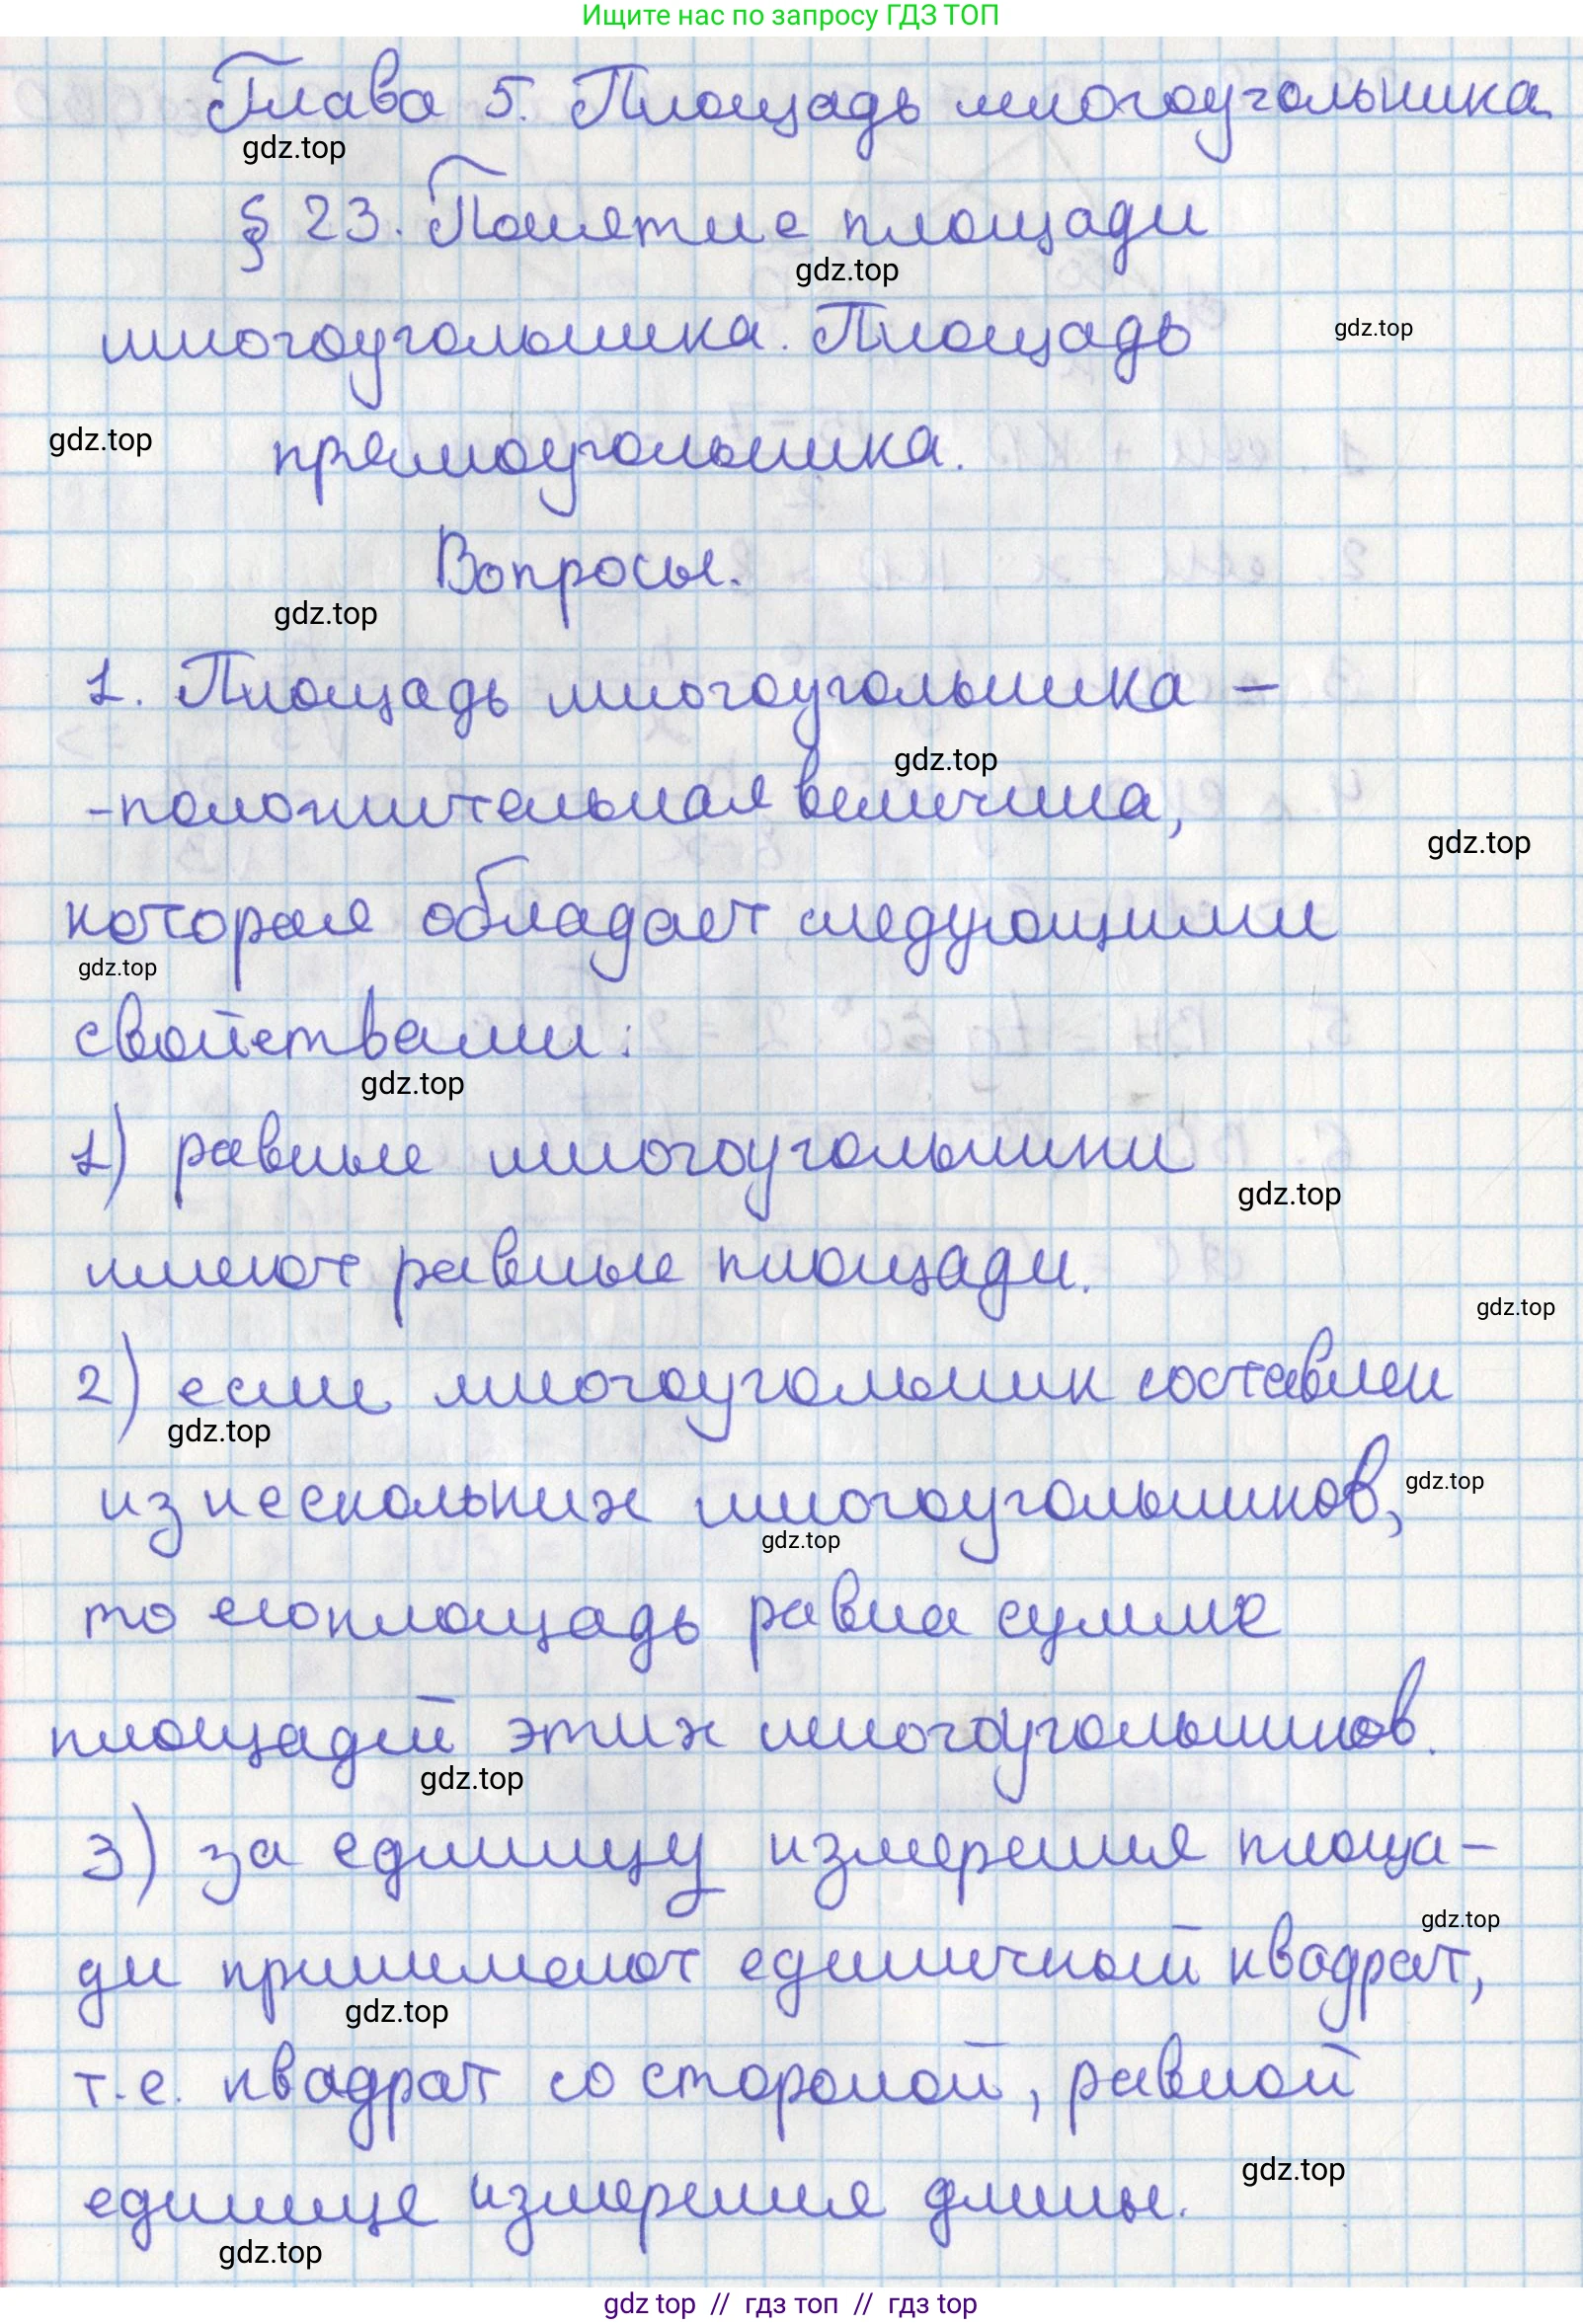 Ищите нас по запросу ГДЗ ТОП
Глава 5. Площадь многоугольника.
gdz.top
§ 23. Понятие площади
gdz.top
многоугольника. Площадь
gdz.top
gdz.top
прямоугольника.
Вопросы.
gdz.top
1. Площадь многоугольника –
gdz.top
-положительная величина,
gdz.top
которая обладает следующими
gdz.top
свойствами:
gdz.top
1) равные многоугольники
gdz.top
имеют равные площади.
gdz.top
2) если многоугольник составлен
gdz.top
из нескольких многоугольников,
gdz.top
gdz.top
то его площадь равна сумме
площадей этих многоугольников.
gdz.top
3) за единицу измерения площа-
gdz.top
ди принимают единичный квадрат,
gdz.top
т.е. квадрат со стороной, равной
gdz.top
единице измерения длины.
gdz.top
gdz top // гдз топ // гдз top